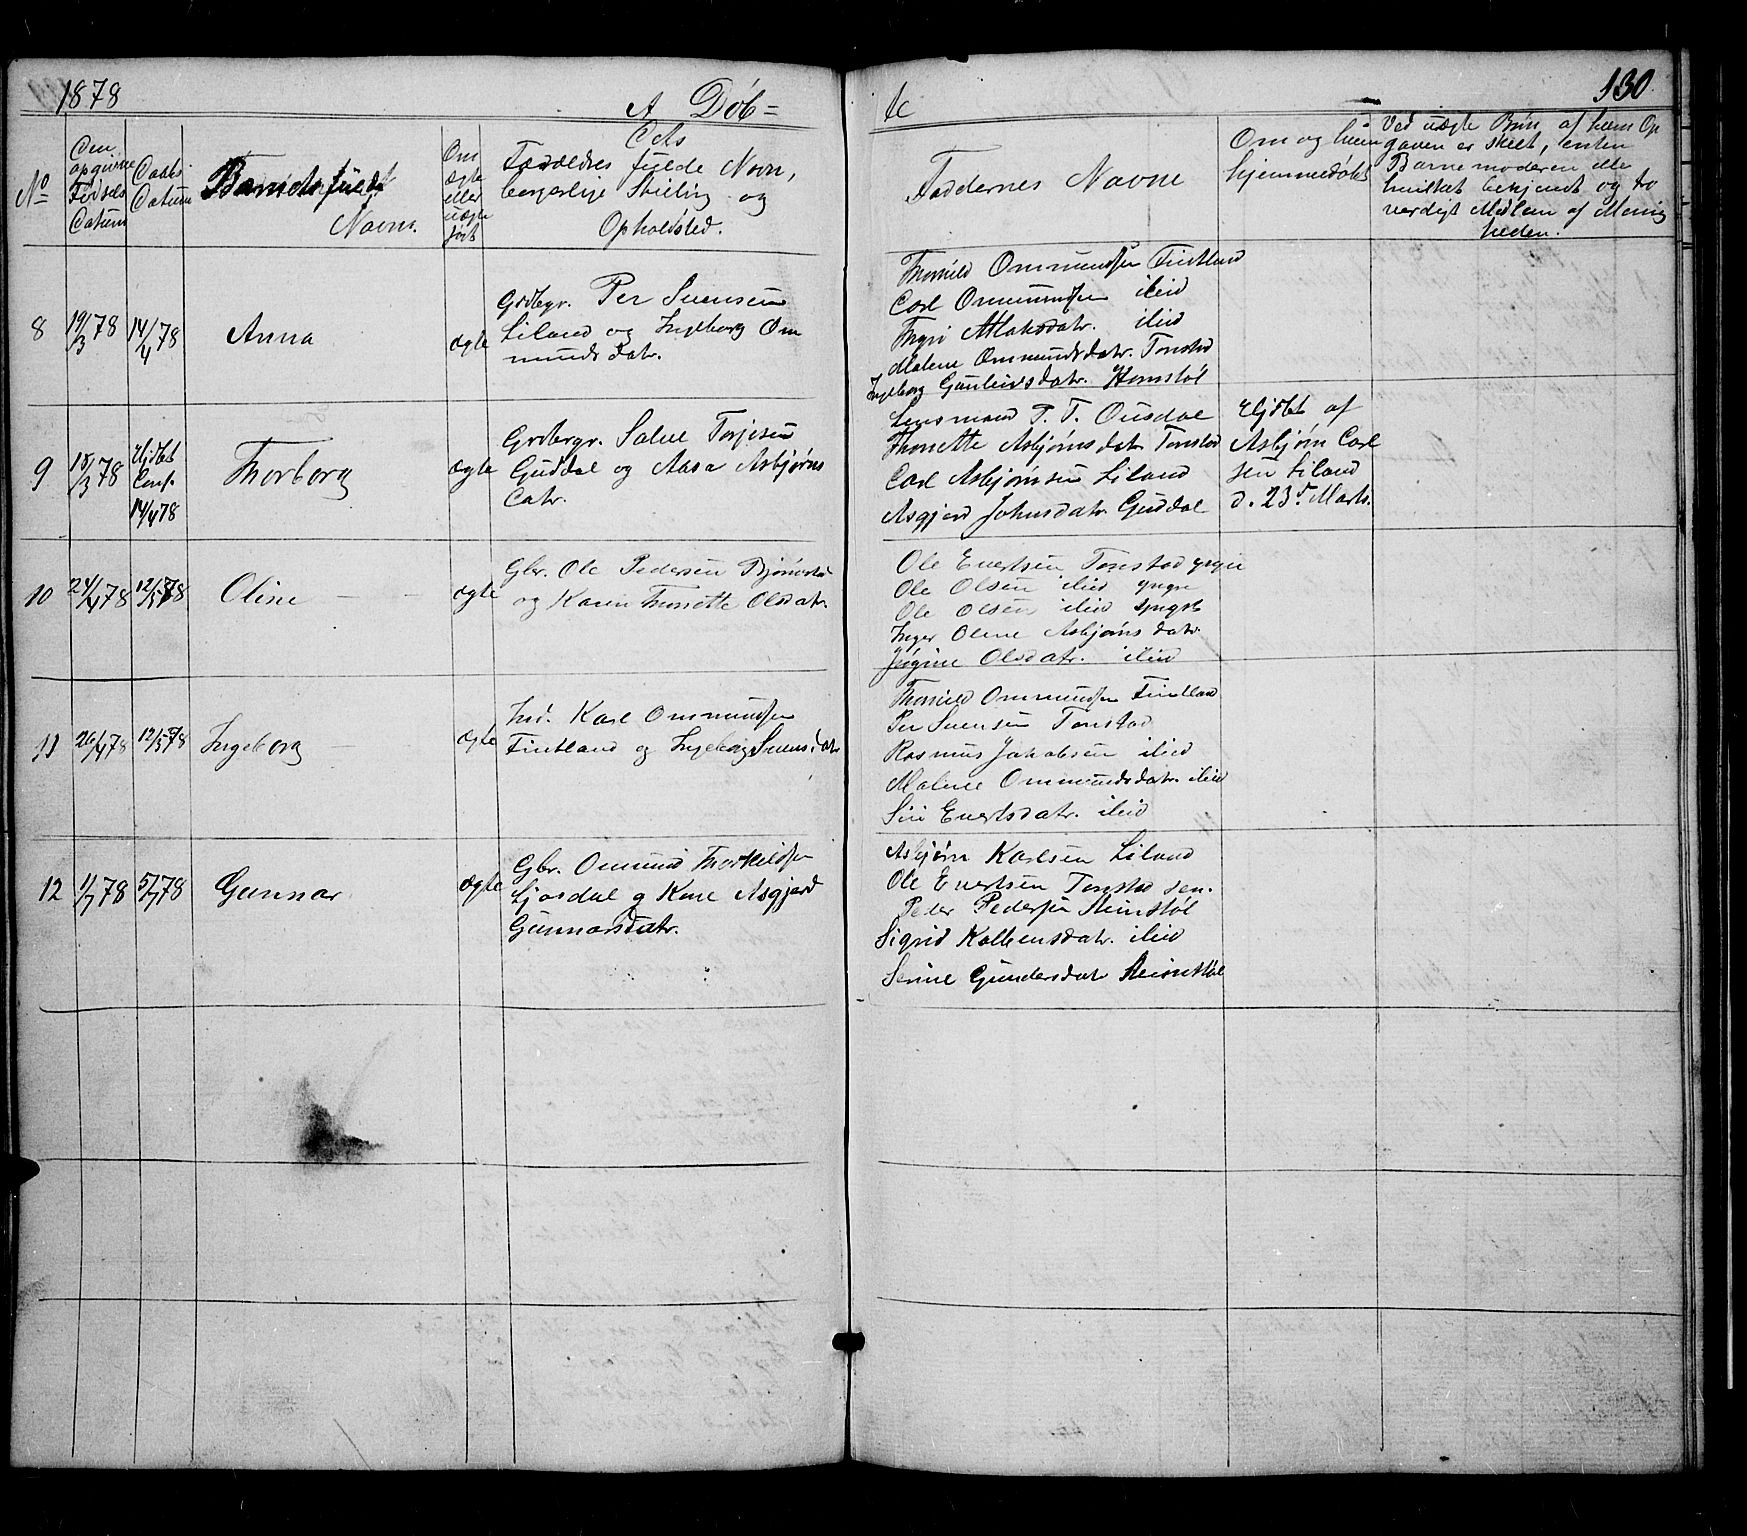 1878
A Døb=
te
130.
No
Den
opgivne
Fødsels
Datum
Daabs
Datum
Barnets fulde
Navn.
Om
ægte
eller
uægte
født
Forældres fulde Navn,
borgerlige Stilling og
Opholdsted.
Faddernes Navne
Om og hvem
hjemmedøbt
Ved uægte Børn, af hvem Op
gaven er skeet, enten
Barnemoderen eller
bekjendt og tro
værdigt Medlem af Menig
heden.
8
19/3 78
14/4 78
Anna
ægte
Grdbgr. Per Svensen
Liland og Ingeborg Om
mundsdatr.
Thorkild Ommundsen Fintland
Carl Ommundsen ibid
Atlaksdatr. ibid
Malene Ommundsdatr. Tonstad
Ingeborg Gunleivsdatr. Homstøl
9
18/3 78
Hjdbt
Conf.
14/4 78
Thorborg
ægte
Grdbrgr. Salve Torjesen
Guddal og Aasa Asbjørns
datr.
Lensmand P. T. Ousdal
Thonette Asbjørnsdatr. Tonstad
Carl Asbjørnsen Liland
Asgjerd Johnsdatr. Guddal
Hjdbt af
Asbjørn Carl
sen Liland
d. 23d Marts.
10
24/4 78
12/5 78
Oline
ægte
Gbr. Ole Pedersen Bjørnestad
og Karen Thonette Olsdatr.
Ole Evertsen Tonstad yngre
Ole Olsen ibid yngre
Ole Olsen ibid yngst
Inger Olene Asbjørnsdatr.
Jørgine Olsdatr. ibid
11
26/4 78
12/5 78
Ingeborg
ægte
Ind. Karl Ommundsen
Fintland og Ingeborg Svensdatr
Thorkild Ommundsen Fintland
Per Svensen Tonstad
Rasmus Jakobsen ibid
Malene Ommundsdatr. ibid
Siri Evertsdatr. ibid
12
1/7 78
5/7 78
Gunnar
ægte
Gbr. Omund Thorkildsen
Ljosdal og Kone Asgjerd
Gunnarsdatr.
Asbjørn Karlsen Liland
Ole Evertsen Tonstad sen.
Peder Pedersen
Sigrid ibid
Serine Gundersdatr